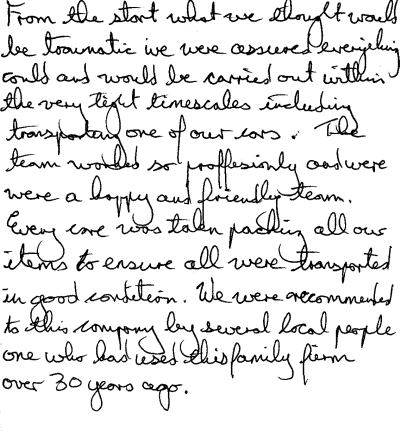 From the start what we thought would
be traumatic we were assured everything
could and would be carried out within
the very tight timescales including
transporting one of our cars. The
team worked so proffesionly and were
were a happy and friendly team.
Every care was taken packing all our
items to ensure all were transported
in good condition. We were recommended
to this company by several local people
one who had used this family firm
over 30 years ago.